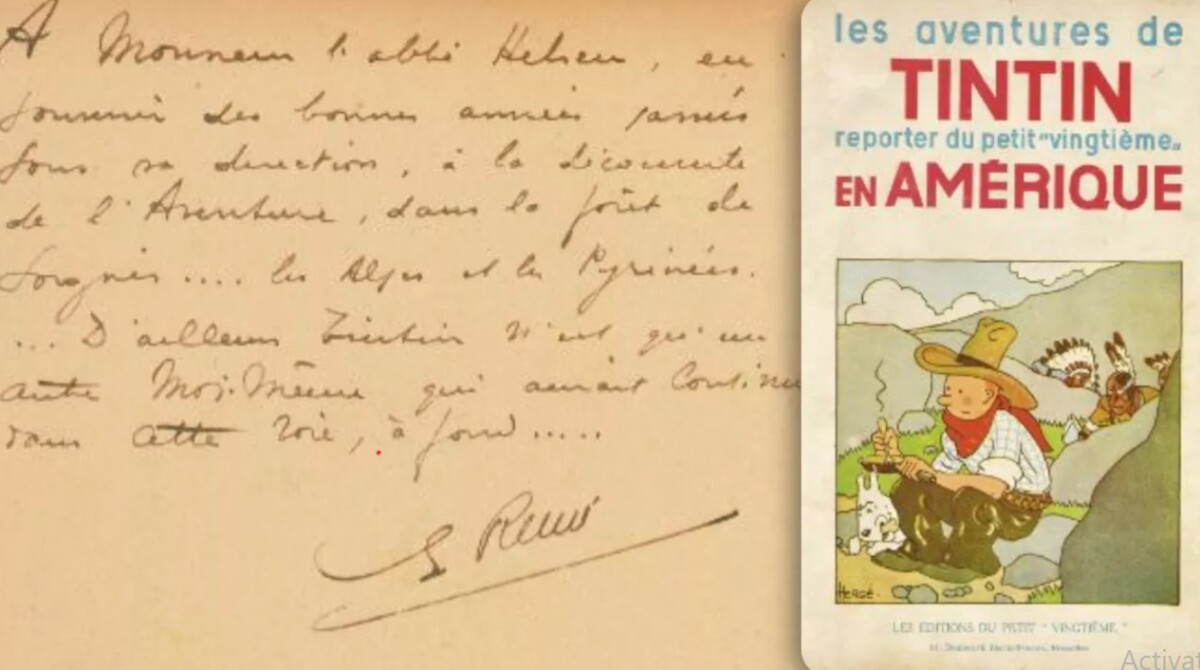 A Monsieur l'abbé Helsen, en
souvenir des bonnes années passées
sous sa direction, à la découverte
de l'Aventure, dans la forêt de
Soignes.... les Alpes et les Pyrénées.
... D'ailleurs Tintin n'est qu'un
autre Moi-Même qui aurait continué
dans cette voie, à fond.....
G Remi
les aventures de
TINTIN
reporter du petit "vingtième"
EN AMÉRIQUE
HERGÉ.
LES EDITIONS DU PETIT "VINGTIÈME"
Activat